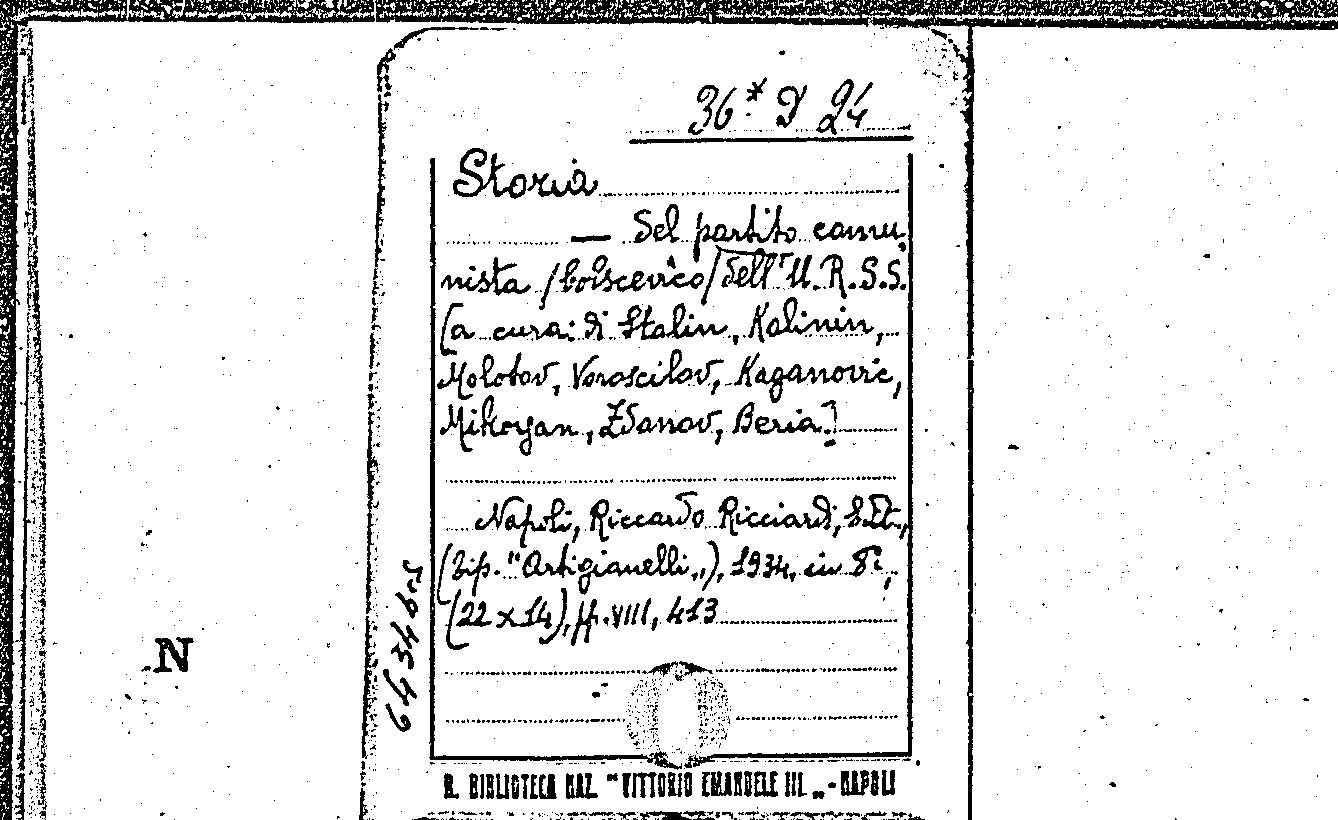 36* D 24
Storia
— del partito comu-
nista /bolscevico/ dell'U.R.S.S.
[a cura: di Stalin, Kalinin,
Molotov, Voroscilov, Kaganovic,
Mikoyan, Zdanov, Beria.]
Napoli, Riccardo Ricciardi, Edit.,
(Tip. "Artigianelli„), 1934, in 8°,
(22 x 14), pp. VIII, 413
N
R. BIBLIOTECA NAZ. "VITTORIO EMANUELE III„ - NAPOLI